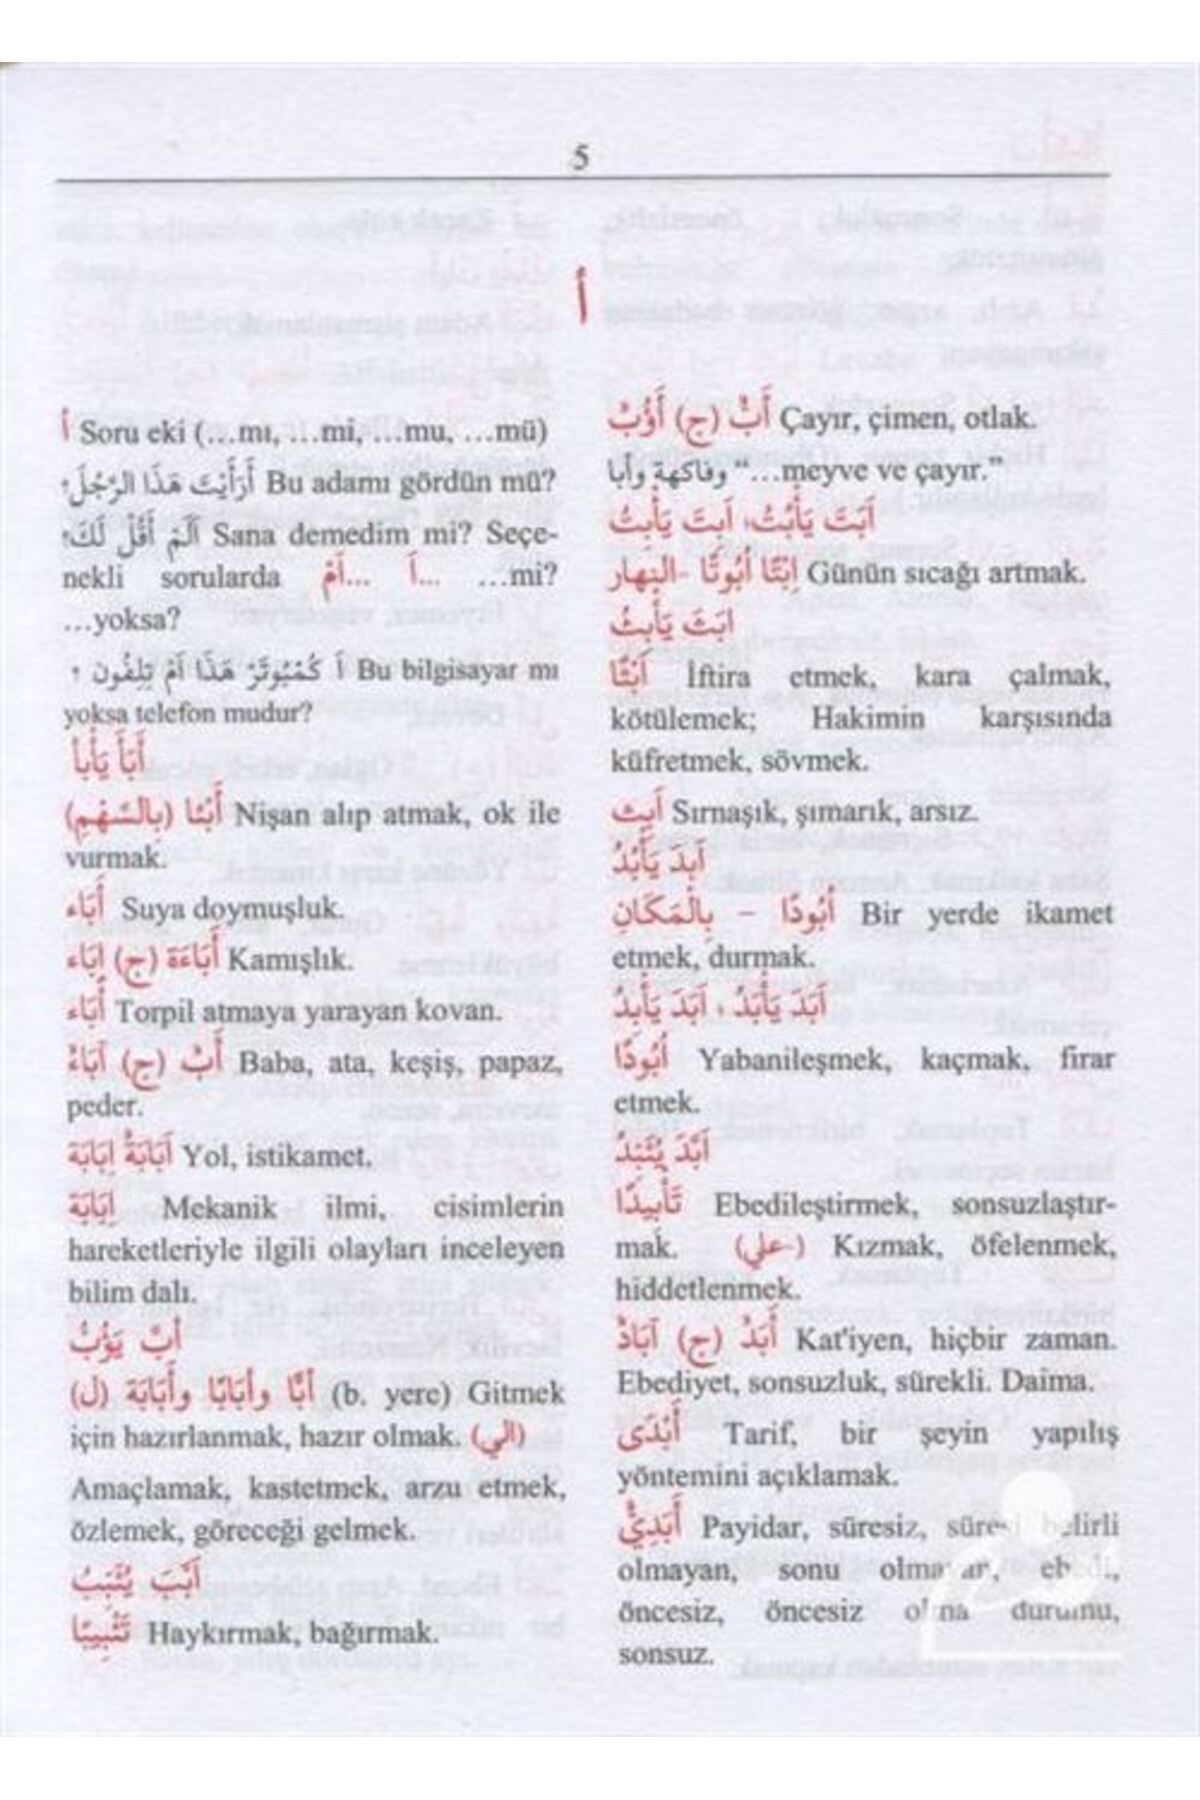 5
أ
أ Soru eki (…mı, …mi, …mu, …mü)
أَرَأَيْتَ هَذَا الرَّجُلَ؟ Bu adamı gördün mü?
اَلَمْ أَقُلْ لَكَ؟ Sana demedim mi? Seçe-
nekli sorularda اَ ...اَمْ ...‏ …mi?
…yoksa?
أَ كَمْبُوتَرْ هَذَا اَمْ تِلِفُون ؟ Bu bilgisayar mı
yoksa telefon mudur?
أَبَأَ يَأْبأ
أَبْئا (بِالسَّهْمِ) Nişan alıp atmak, ok ile
vurmak.
أَبَاء Suya doymuşluk.
أَبَاءَة (ج) اِبَاء Kamışlık.
أَبَاء Torpil atmaya yarayan kovan.
أَبٌ (ج) اَبَاءٌ Baba, ata, keşiş, papaz,
peder.
اَبَابَةٌ اِبَابَة Yol, istikamet.
اِبَابَة Mekanik ilmi, cisimlerin
hareketleriyle ilgili olayları inceleyen
bilim dalı.
أَبَّ يَؤُبُّ
أَبًّا وأَبَابًا وأَبَابَة (ل) (b. yere) Gitmek
için hazırlanmak, hazır olmak. (الي)
Amaçlamak, kastetmek, arzu etmek,
özlemek, göreceği gelmek.
أَبَّبَ
تَئْبِيبًا Haykırmak, bağırmak.
أَبٌّ (ج) أَؤُبٌّ Çayır, çimen, otlak.
وفاكهة وأبا “…meyve ve çayır.”
اَبَتَ يَأْبُتُ، اَبِتَ يَأْبِتُ
اِبْتًا اُبُوتًا -النهار Günün sıcağı artmak.
اَبَثَ يَأْبِثُ
اَبْثًا İftira etmek, kara çalmak,
kötülemek; Hakimin karşısında
küfretmek, sövmek.
اَبِث Sırnaşık, şımarık, arsız.
اَبَدَ يَأْبُدُ
اُبُودًا – بِالْمَكَانِ Bir yerde ikamet
etmek, durmak.
اَبَدَ يَأْبَدُ ، اَبَدَ يَأْبِدُ
اُبُودًا Yabanileşmek, kaçmak, firar
etmek.
اَبَّدَ
تَأْبِيدًا Ebedileştirmek, sonsuzlaştır-
mak. (علي-) Kızmak, öfelenmek,
hiddetlenmek.
أَبَدْ (ج) اَبَادٌ Kat'iyen, hiçbir zaman.
Ebediyet, sonsuzluk, sürekli. Daima.
أَبْدَى Tarif, bir şeyin yapılış
yöntemini açıklamak.
أَبَدِيٌّ Payidar, süresiz, süresi belirli
olmayan, sonu olmayan, ebedi,
öncesiz, öncesiz olma durumu,
sonsuz.